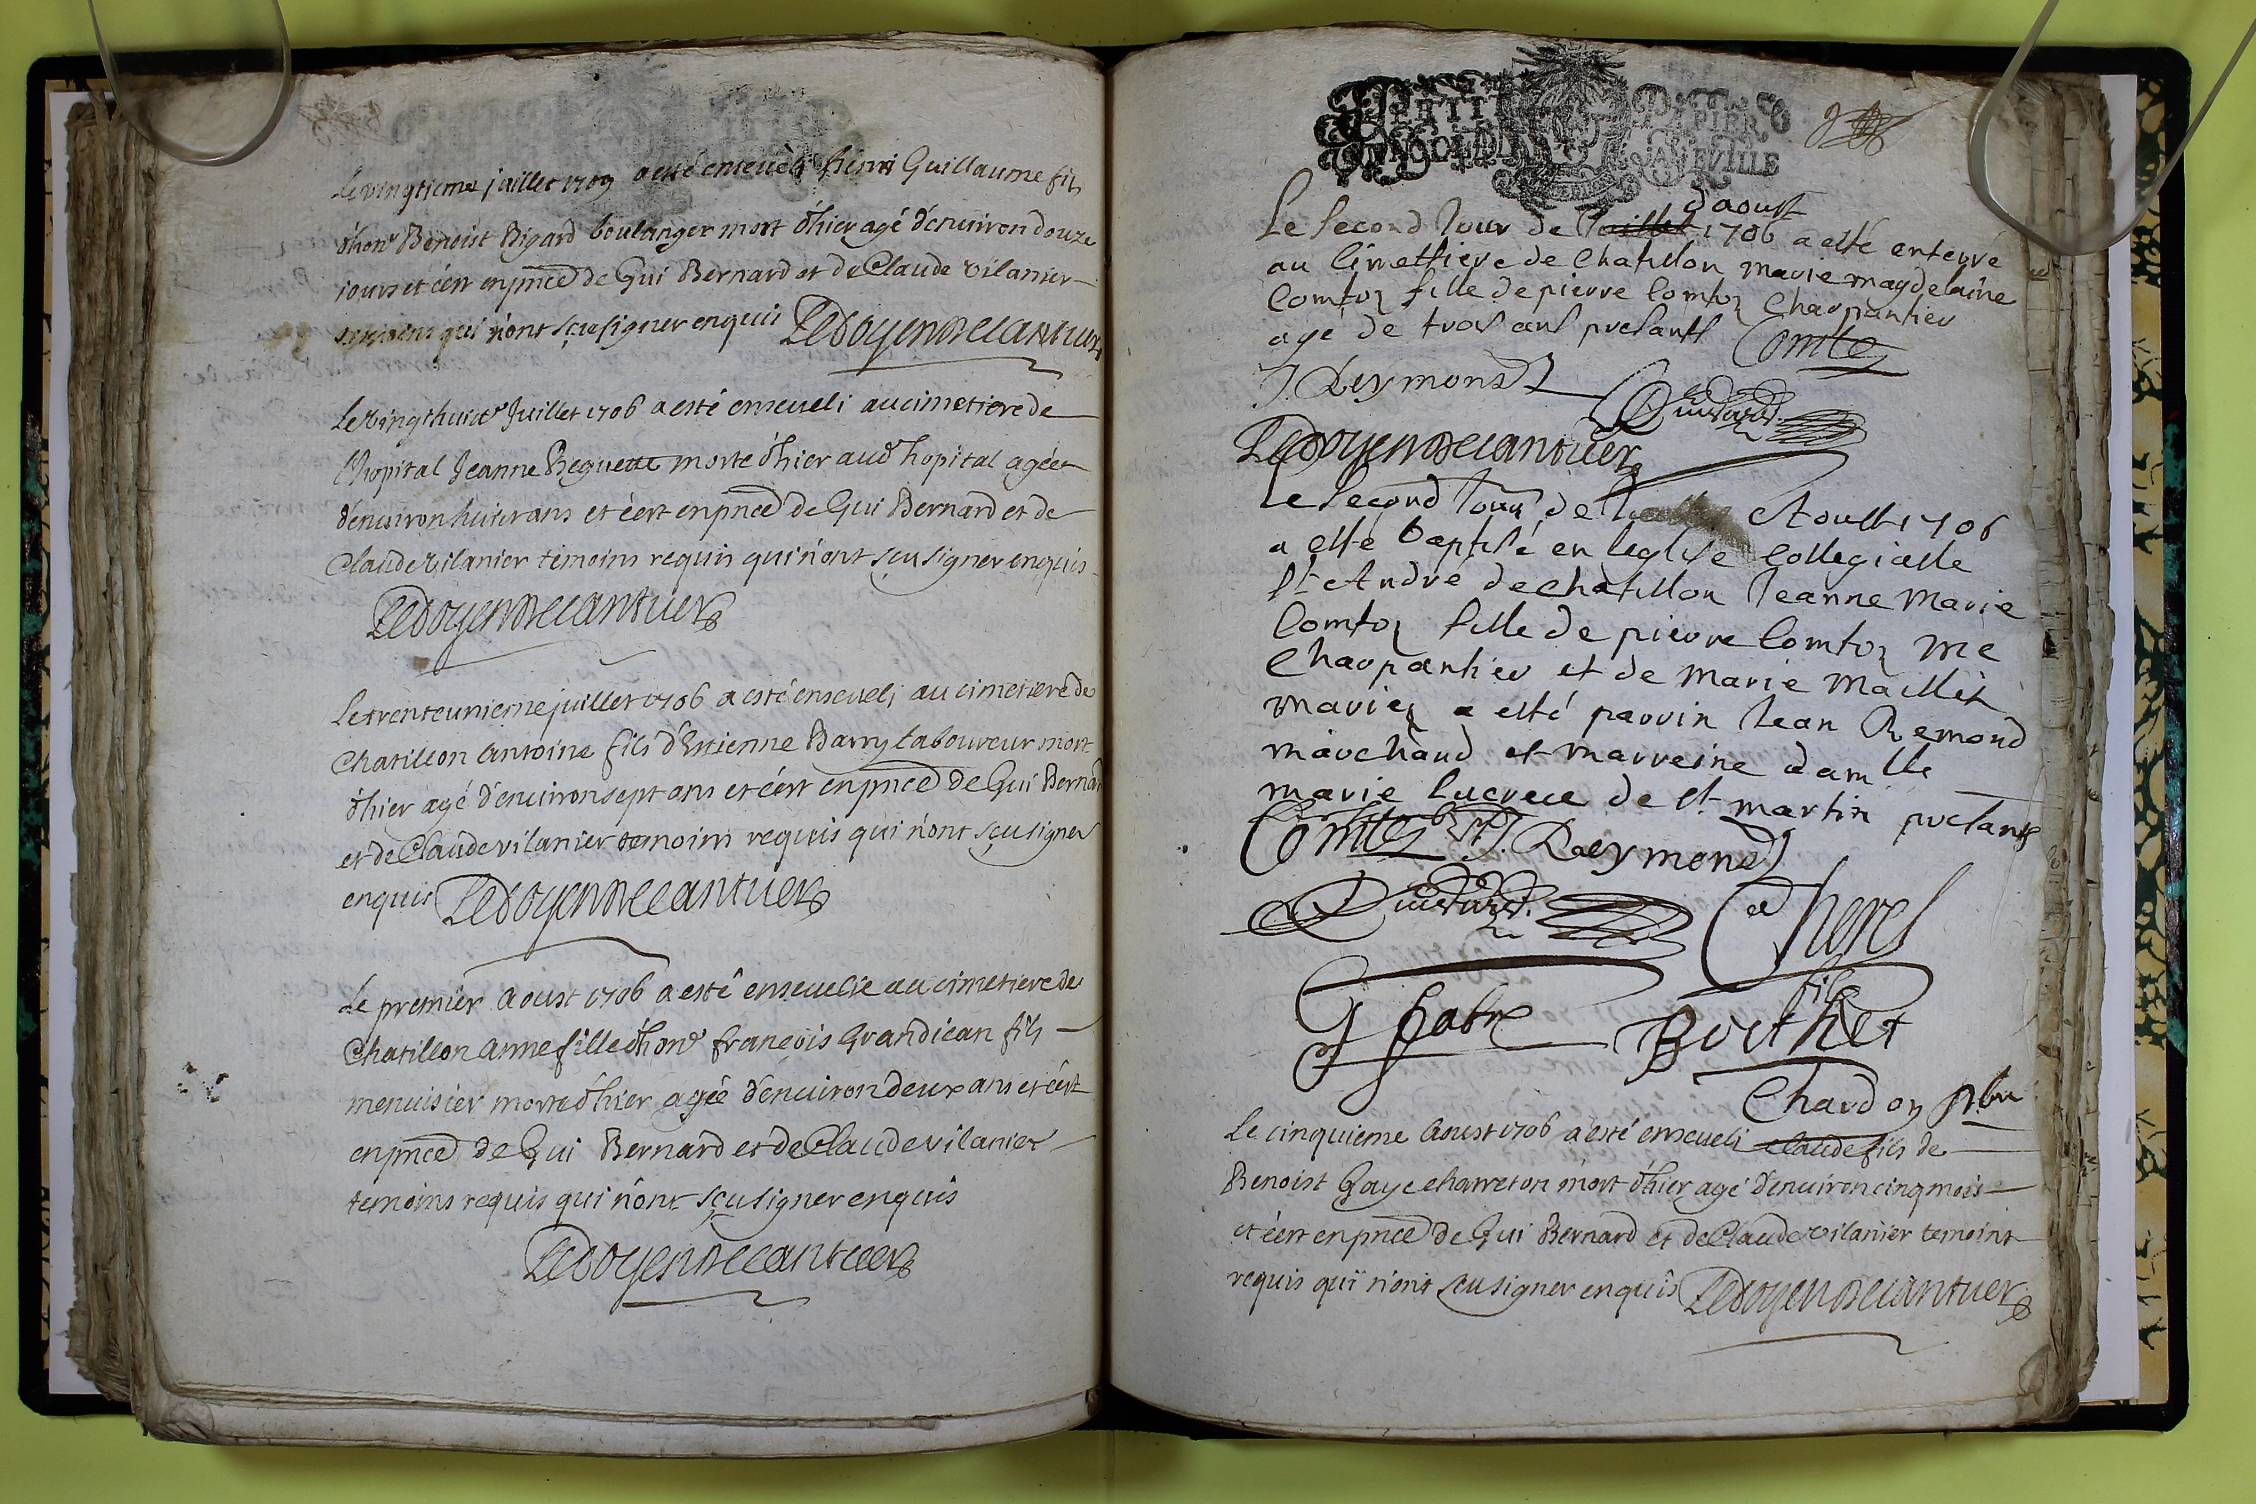 Le vingtieme juillet 1706 a esté enseueli henri Guillaume fils
d'hon.e Benoist Bigard boulanger mort d'hier agé d'enuiron douze
iours et c'est en pnce de Gui Bernard et de Claude vilanier
temoins qui n'ont sçeu signer enquis Ledoyen
Le vingthuit.e Juillet 1706 a esté enseueli au cimetiere de
l'hopital Jeanne Reguette morte d'hier aud hopital agée
d'enuiron huit ans et c'est en pnce de Gui Bernard et de
Claude vilanier temoins requis qui n'ont sçu signer enquis
Ledoyen
Le trenteunieme juillet 1706 a esté enseueli au cimetiere de
Chatillon Antoine fils d'Estienne Barry laboureur mort
d'hier agé d'enuiron sept ans et c'est en pnce de Gui Bernar
et de Claude vilanier temoins requis qui n'ont sçu signer
enquis Ledoyen
Le premier Aoust 1706 a esté enseuelie au cimetiere de
Chatillon anne fille d'hon.e françois Grandiean fils
menuisier morte d'hier agée d'enuiron deux ans et c'est
en pnce de Gui Bernard et de Claude vilanier
temoins requis qui n'ont sçu signer enquis
Ledoyen
PETIT PAPIER
JAUEVILLE
d'aoust
Le second Jour de Juillet 1706 a esté enterré
au Cimettiere de Chatillon marie magdelaine
Comtoz fille de pierre Comtoz Charpantier
agé de troi ans presants Comtes
J. Reymond
Ledoyen
Le second Jour de Aoust 1706
a esté baptisé en leglise Collegialle
St André de chatillon Jeanne Marie
Comtoz fille de pierre Comtoz me
Charpantier et de Marie Maillet
mariez a esté parrin Jean Remond
marchand et marreine damlle
marie lucrece de St martin presants
Comtes J. Reymond
Cherel
fils
Fabre Borthet
Chardon pbre
Le cinquieme Aoust 1706 a esté enseueli Claude fils de
Benoist Gaye charreton mort d'hier agé d'enuiron cinq mois
et c'est en pnce de Gui Bernard et de Claude vilanier temoins
requis qui n'ont sçu signer enquis Ledoyen